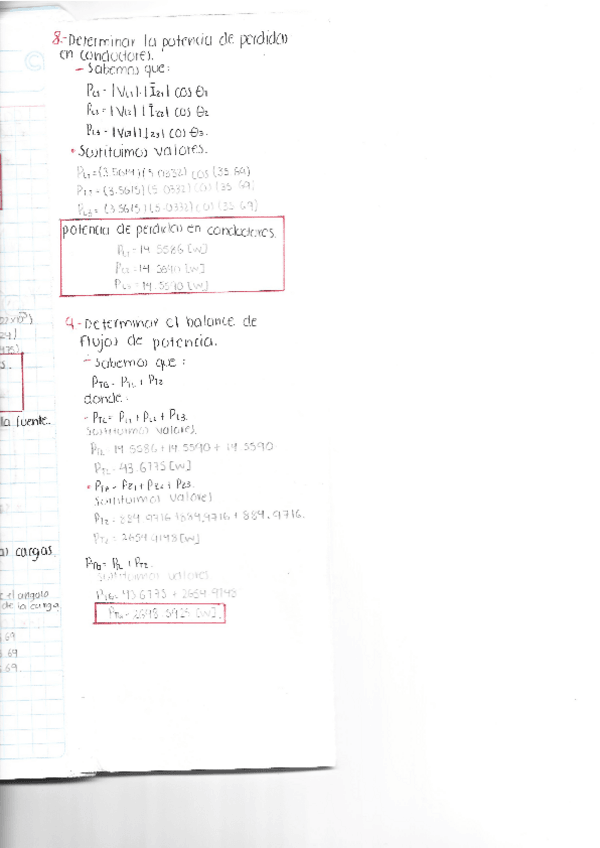 8.-Determinar la potencia de perdidas
en conductores.
- Sabemos que:
PL1 = |VL1| |IZ1| cos θ1
PL2 = |VL2| |IZ2| cos θ2
PL3 = |VL3| |IZ3| cos θ3.
• Sustituimos valores.
PL1 = (3.5614)(5.0332) cos (35.69)
PL2 = (3.5615)(5.0332) cos (35.69)
PL3 = (3.5615)(5.0332) cos (35.69)
potencia de perdidas en conductores.
PL1 = 14.5586 [W]
PL2 = 14.5590 [W]
PL3 = 14.5590 [W]
9.-Determinar el balance de
flujos de potencia.
- Sabemos que:
PTG = PTL + PTZ
donde:
- PTL = PL1 + PL2 + PL3.
Sustituimos valores.
PTL = 14.5586 + 14.5590 + 14.5590
PTL = 43.6775 [W]
• PTZ = PZ1 + PZ2 + PZ3.
Sustituimos valores
PTZ = 884.9716 + 884.9716 + 884.9716.
PTZ = 2654.9148 [W]
PTG = PTL + PTZ.
Sustituimos valores.
PTG = 43.6775 + 2654.9148
PTG = 2698.5925 [W].
la fuente.
cargas.
el angulo
de la carga
.69
.69
.69